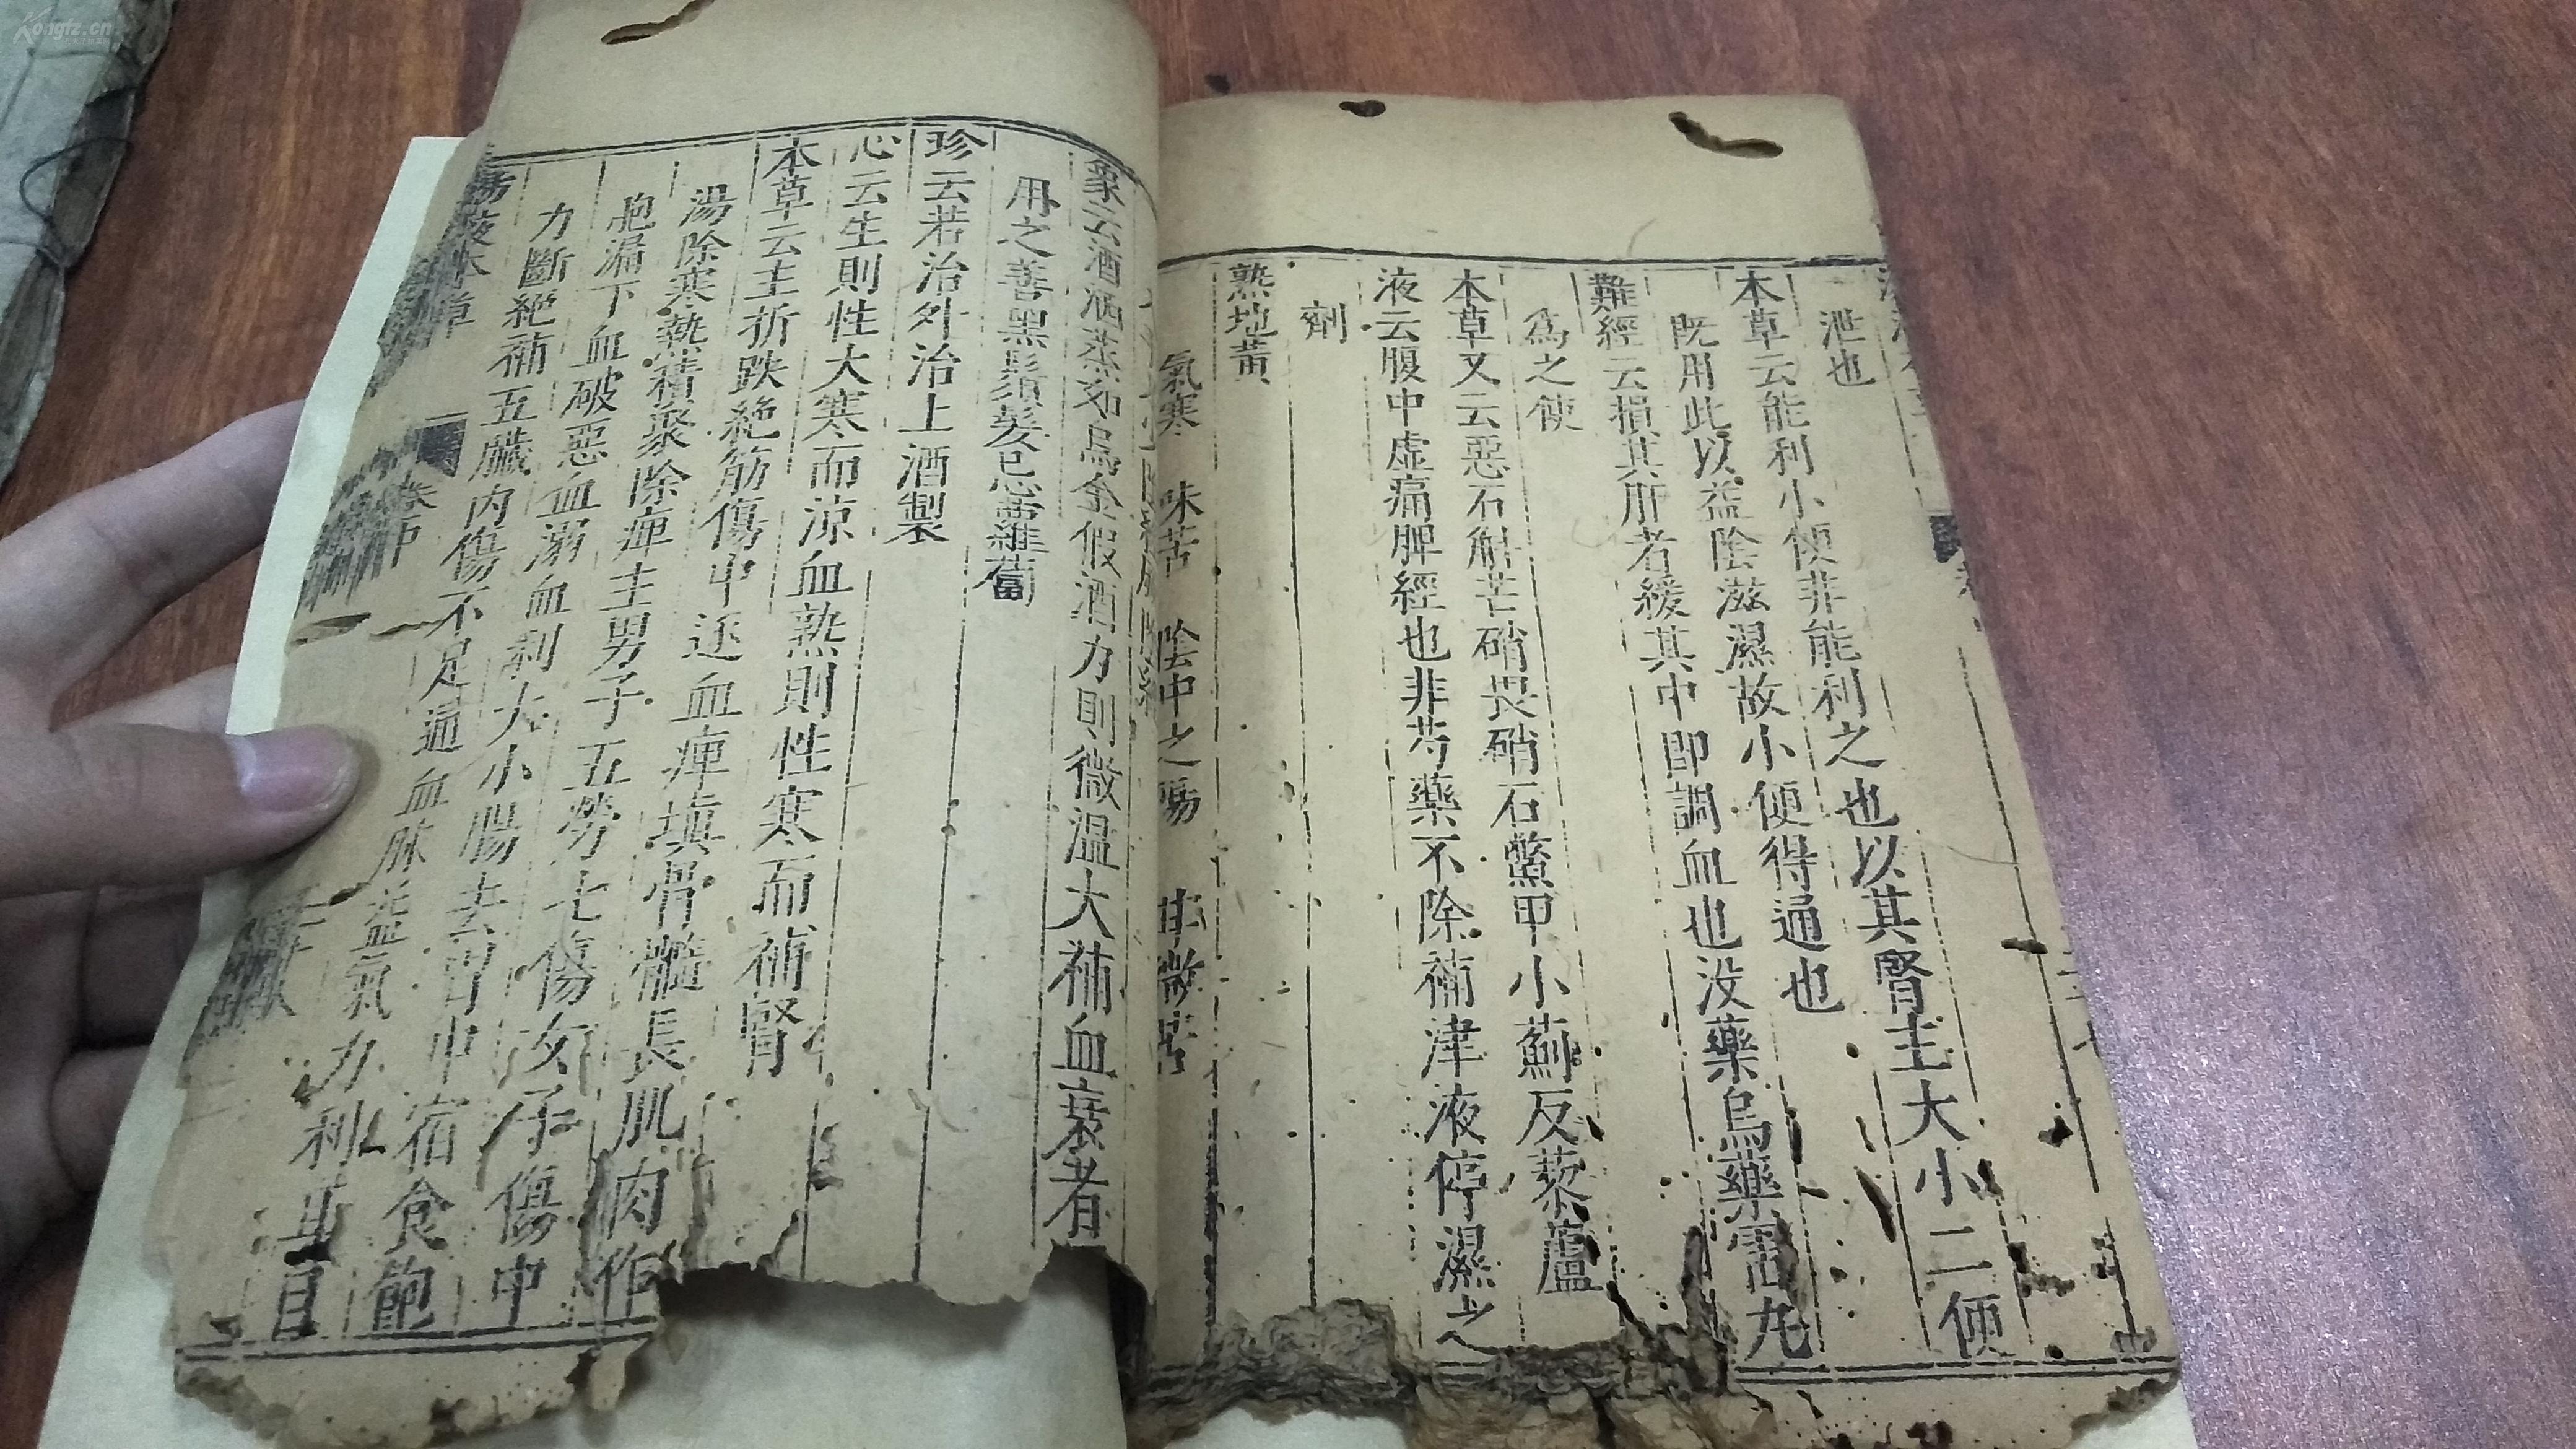 Kongfz.cn
泄也以其腎主大小二便
本草云能利小便非能利之也
既用此以益陰滋濕故小便得通也
難經云損其肝者緩其中即調血也没藥烏藥雷丸
為之使
本草又云惡石斛芒硝畏硝石鱉甲小薊反藜蘆
液云腹中虛痛脾經也非芍藥不除補津液停濕之
劑
熟地黃
氣寒 味苦 陰中之陽 甘微苦
象云酒洒蒸如烏金假酒力則微温大補血衰者
用之善黑鬚髮忌蘿蔔
珍云若治外治上酒製
心云生則性大寒而涼血熟則性寒而補腎
本草云主折跌絶筋傷中逐血痺填骨髓長肌肉作
湯除寒熱積聚除痺主男子五勞七傷女子傷中
胞漏下血破惡血溺血利大小腸去胃中宿食飽
力斷絶補五臟内傷不足通血脉益氣力利耳目
湯液本草 卷中